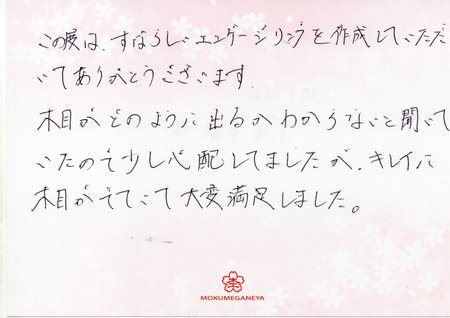 この度は、すばらしいエンゲージリングを作成していただ
いてありがとうございます
木目がどのように出るかわからないと聞いて
いたので少し心配してましたが、キレイに
木目がでていて大変満足しました。
MOKUMEGANEYA